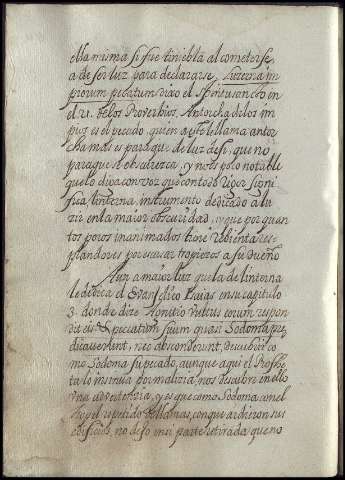 ella misma si fue tiniebla al cometerse,
a de ser luz para declararse. Luzerna im
piorum pecatum dixo el Spiritu sancto en
el 21. de los Proverbios. Antorcha de los im
pios es el pecado, quien a este le llama antor
cha mas es para que de luz de si, que no
para que se obscurezca, y noto solo notable
que lo dixo con voz que con todo rigor signi
fica linterna, instrumento dedicado a lu
zir en la maior obscuridad, y que por quan
tos poros inanimados tiene rebienta res-
plandores por escusar tropiezos a su dueño
Aun a maior luz que la de linterna
le dedica el Evangelico Isaias en su capitulo
3. donde dize Agnitio vultus eorum respon
dit eis & pecatum suum quasi Sodoma pre
dicaverunt, nec absconderunt, descubrir co
mo Sodoma su pecado, aunque aqui el Prophe
ta lo insinua por malizia, nos descubre en ello
una advertenzia, y es que como Sodoma con el
de llamas, con que ardieron sus
edificios, no dejo en si parte retirada que no